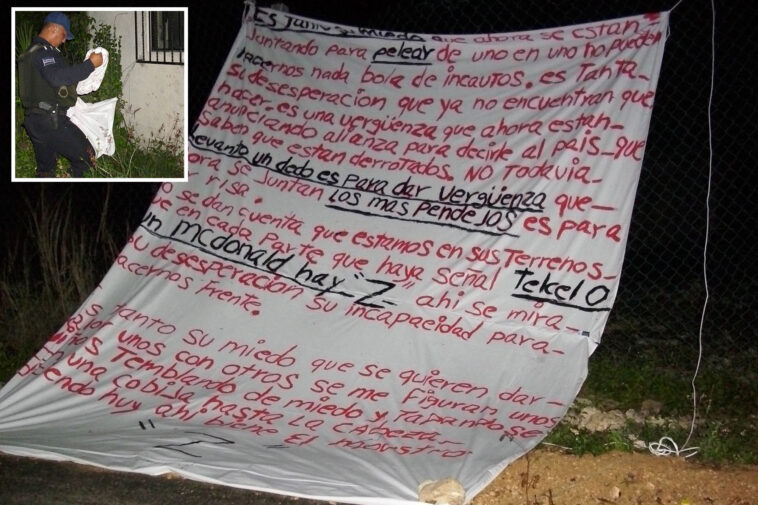 Es tanto su miedo que ahora se estan-
Juntando para pelear de uno en uno no pueden
hacernos nada bola de incautos. es tanta-
su desesperacion que ya no encuentran que
hacer. es una vergüenza que ahora estan-
anunciando alianza para decirle al pais-que
saben que estan derrotados. NO Todavia-
Levanto un dedo es para dar vergüenza que-
ora se juntan Los mas pendejos es para
risa.
se dan cuenta que estamos en sus terrenos-
ue en cada parte que haya señal Telcel o
un mcdonald hay "Z" ahi se mira-
su desesperacion su incapacidad para-
acernos frente.
s tanto su miedo que se quieren dar-
unos con otros se me figuran unos
Temblando de miedo y Tapandose
n una cobija hasta La cabeza-
iendo huy ahi biene El mostro
"Z"